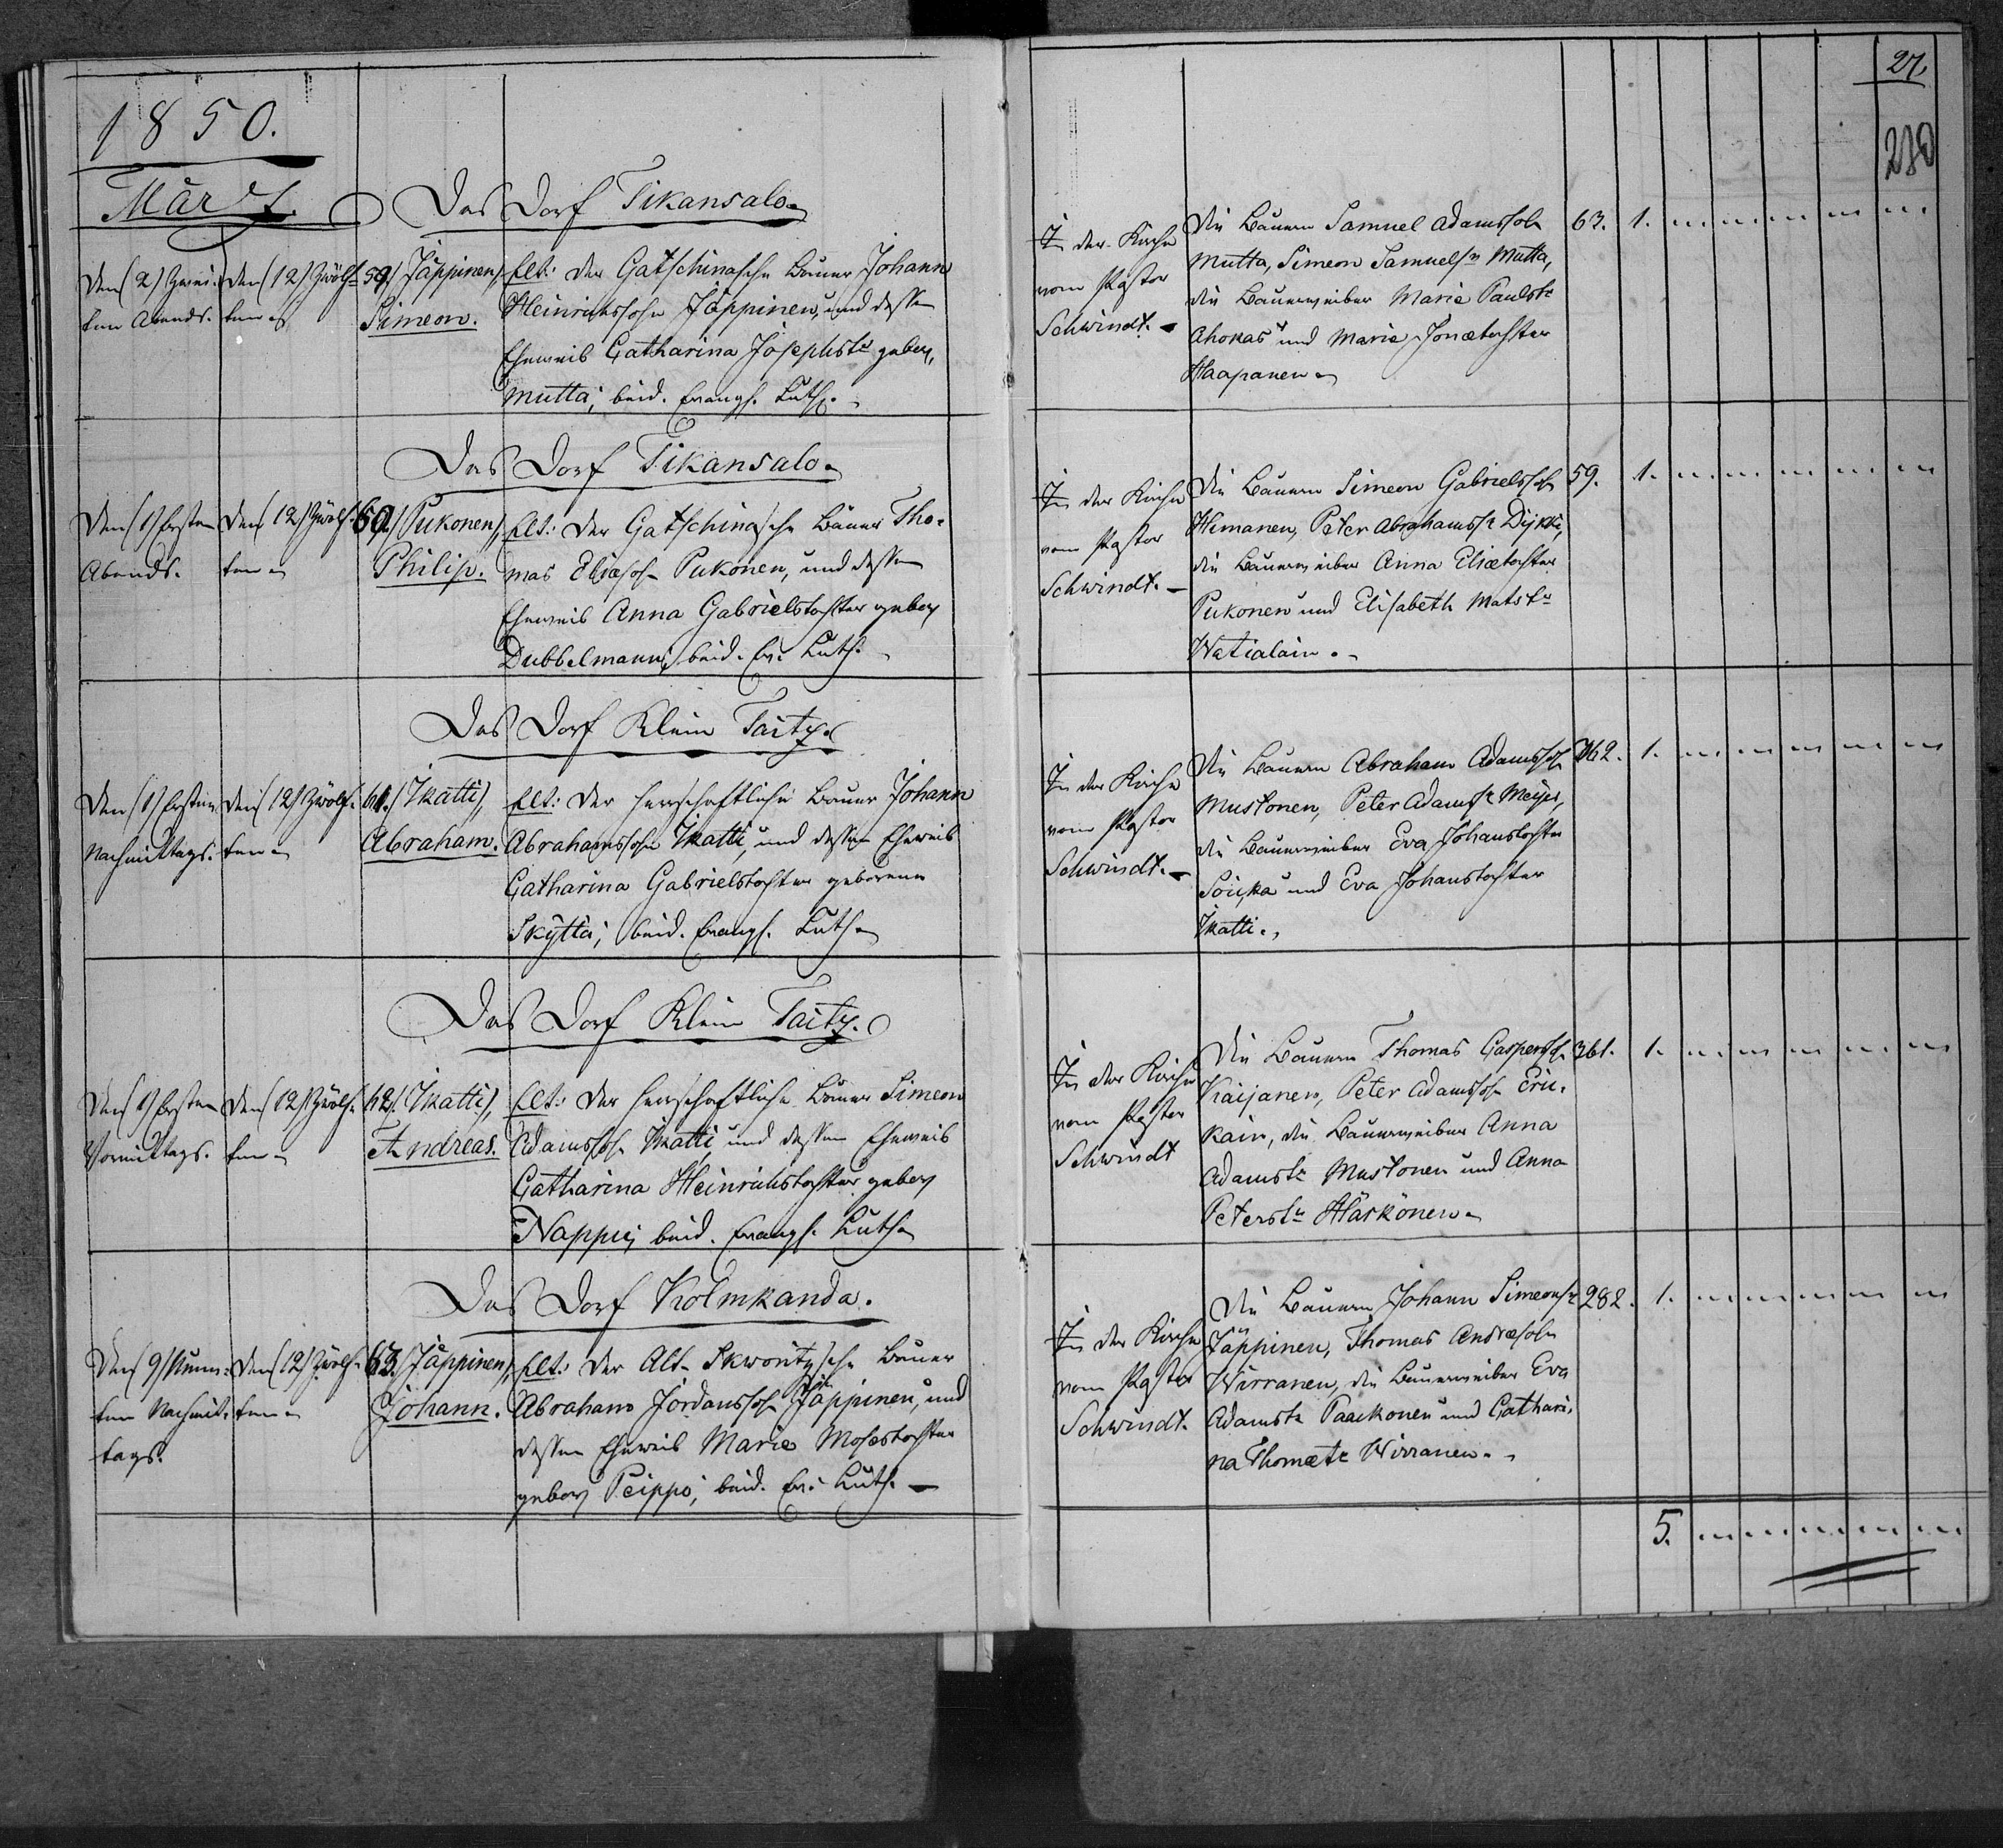 1850.
März.
Das Dorf Tikansalo.
Den (2) Zwei-
ten Abends.
Den (12) Zwölf-
ten
59.) Jäppinen,
Simeon.
Elt: Der Gatschinasche Bauer Johann
Heinrichssohn Jäppinen, und dessen
Eheweib Catharina Josephstr geber.
Mutta; beid. Evangl. Luth.
Das Dorf Tikansalo.
Den (1) Ersten
Abends.
Den (12) Zwölf-
ten
60.) Pukonen,
Philip.
Elt: Der Gatschinasche Bauer Tho-
mas Eliassoh Pukonen, und dessen
Eheweib Anna Gabrielstochter gebor
Dubbelmann; beid. Ev. Luth.
Das Dorf Klein Taitz.
Den (1) Ersten
Nachmittags.
Den (12) Zwölf-
ten
61.) Ikatti,
Abraham.
Elt: Der herrschaftliche Bauer Johann
Abrahamssohn Ikatti, und dessen Eheweib
Catharina Gabrielstochter geborene
Skyttä; beid. Evangl. Luth.
Das Dorf Klein Taitz.
Den (1) Ersten
Vormittags.
Den (12) Zwölf-
ten
62.) Ikatti,
Andreas.
Elt: Der herrschaftliche Bauer Simeon
Adamssoh Ikatti, und dessen Eheweib
Catharina Heinrichstochter gebor
Nappu; beid. Evangl. Luth.
Das Dorf Kolmkanda.
Den (9) Neun-
ten Nachmit-
tags.
Den (12) Zwölf-
ten
63.) Jäppinen,
Johann.
Elt: Der Alt-Skworitzsche Bauer
Abraham Jordanssoh Jäppinen, und
dessen Eheweib Maria Mosestochter
gebor Peippo; beid. Ev. Luth.
27.
280
In der Kirche
vom Pastor
Schwindt.
Die Bauern Samuel Adamssoh
Mutta, Simeon Samuelsn Mutta,
die Bauerweiber Maria Paulstr
Ahokas und Maria Jonætochter
Haapanen
63. 1.
In der Kirche
vom Pastor
Schwindt.
Die Bauern Simeon Gabrielssoh
Himanen, Peter Abrahamssn Dykki,
die Bauerweiber Anna Eliætochter
Pukonen und Elisabeth Matstr
Watialain.
59. 1.
In der Kirche
vom Pastor
Schwindt.
Die Bauern Abraham Adamssoh
Mustonen, Peter Adamssn Meyer,
die Bauerweiber Eva Johanstochter
Souka und Eva Johanstochter
Ikatti.
362. 1.
In der Kirche
vom Pastor
Schwindt
Die Bauern Thomas Casperssoh
Kaijanen, Peter Adamssoh Eri-
kain, die Bauerweiber Anna
Adamstr Mustonen und Anna
Peterstr Härkönen
361. 1.
In der Kirche
vom Pastor
Schwindt.
Die Bauern Johann Simeonsn
Jäppinen, Thomas Andræsoh
Wirranen, die Bauerweiber Eva
Adamstr Paaikonen und Cathari-
na Thomætr Wirranen.
282. 1.
5.